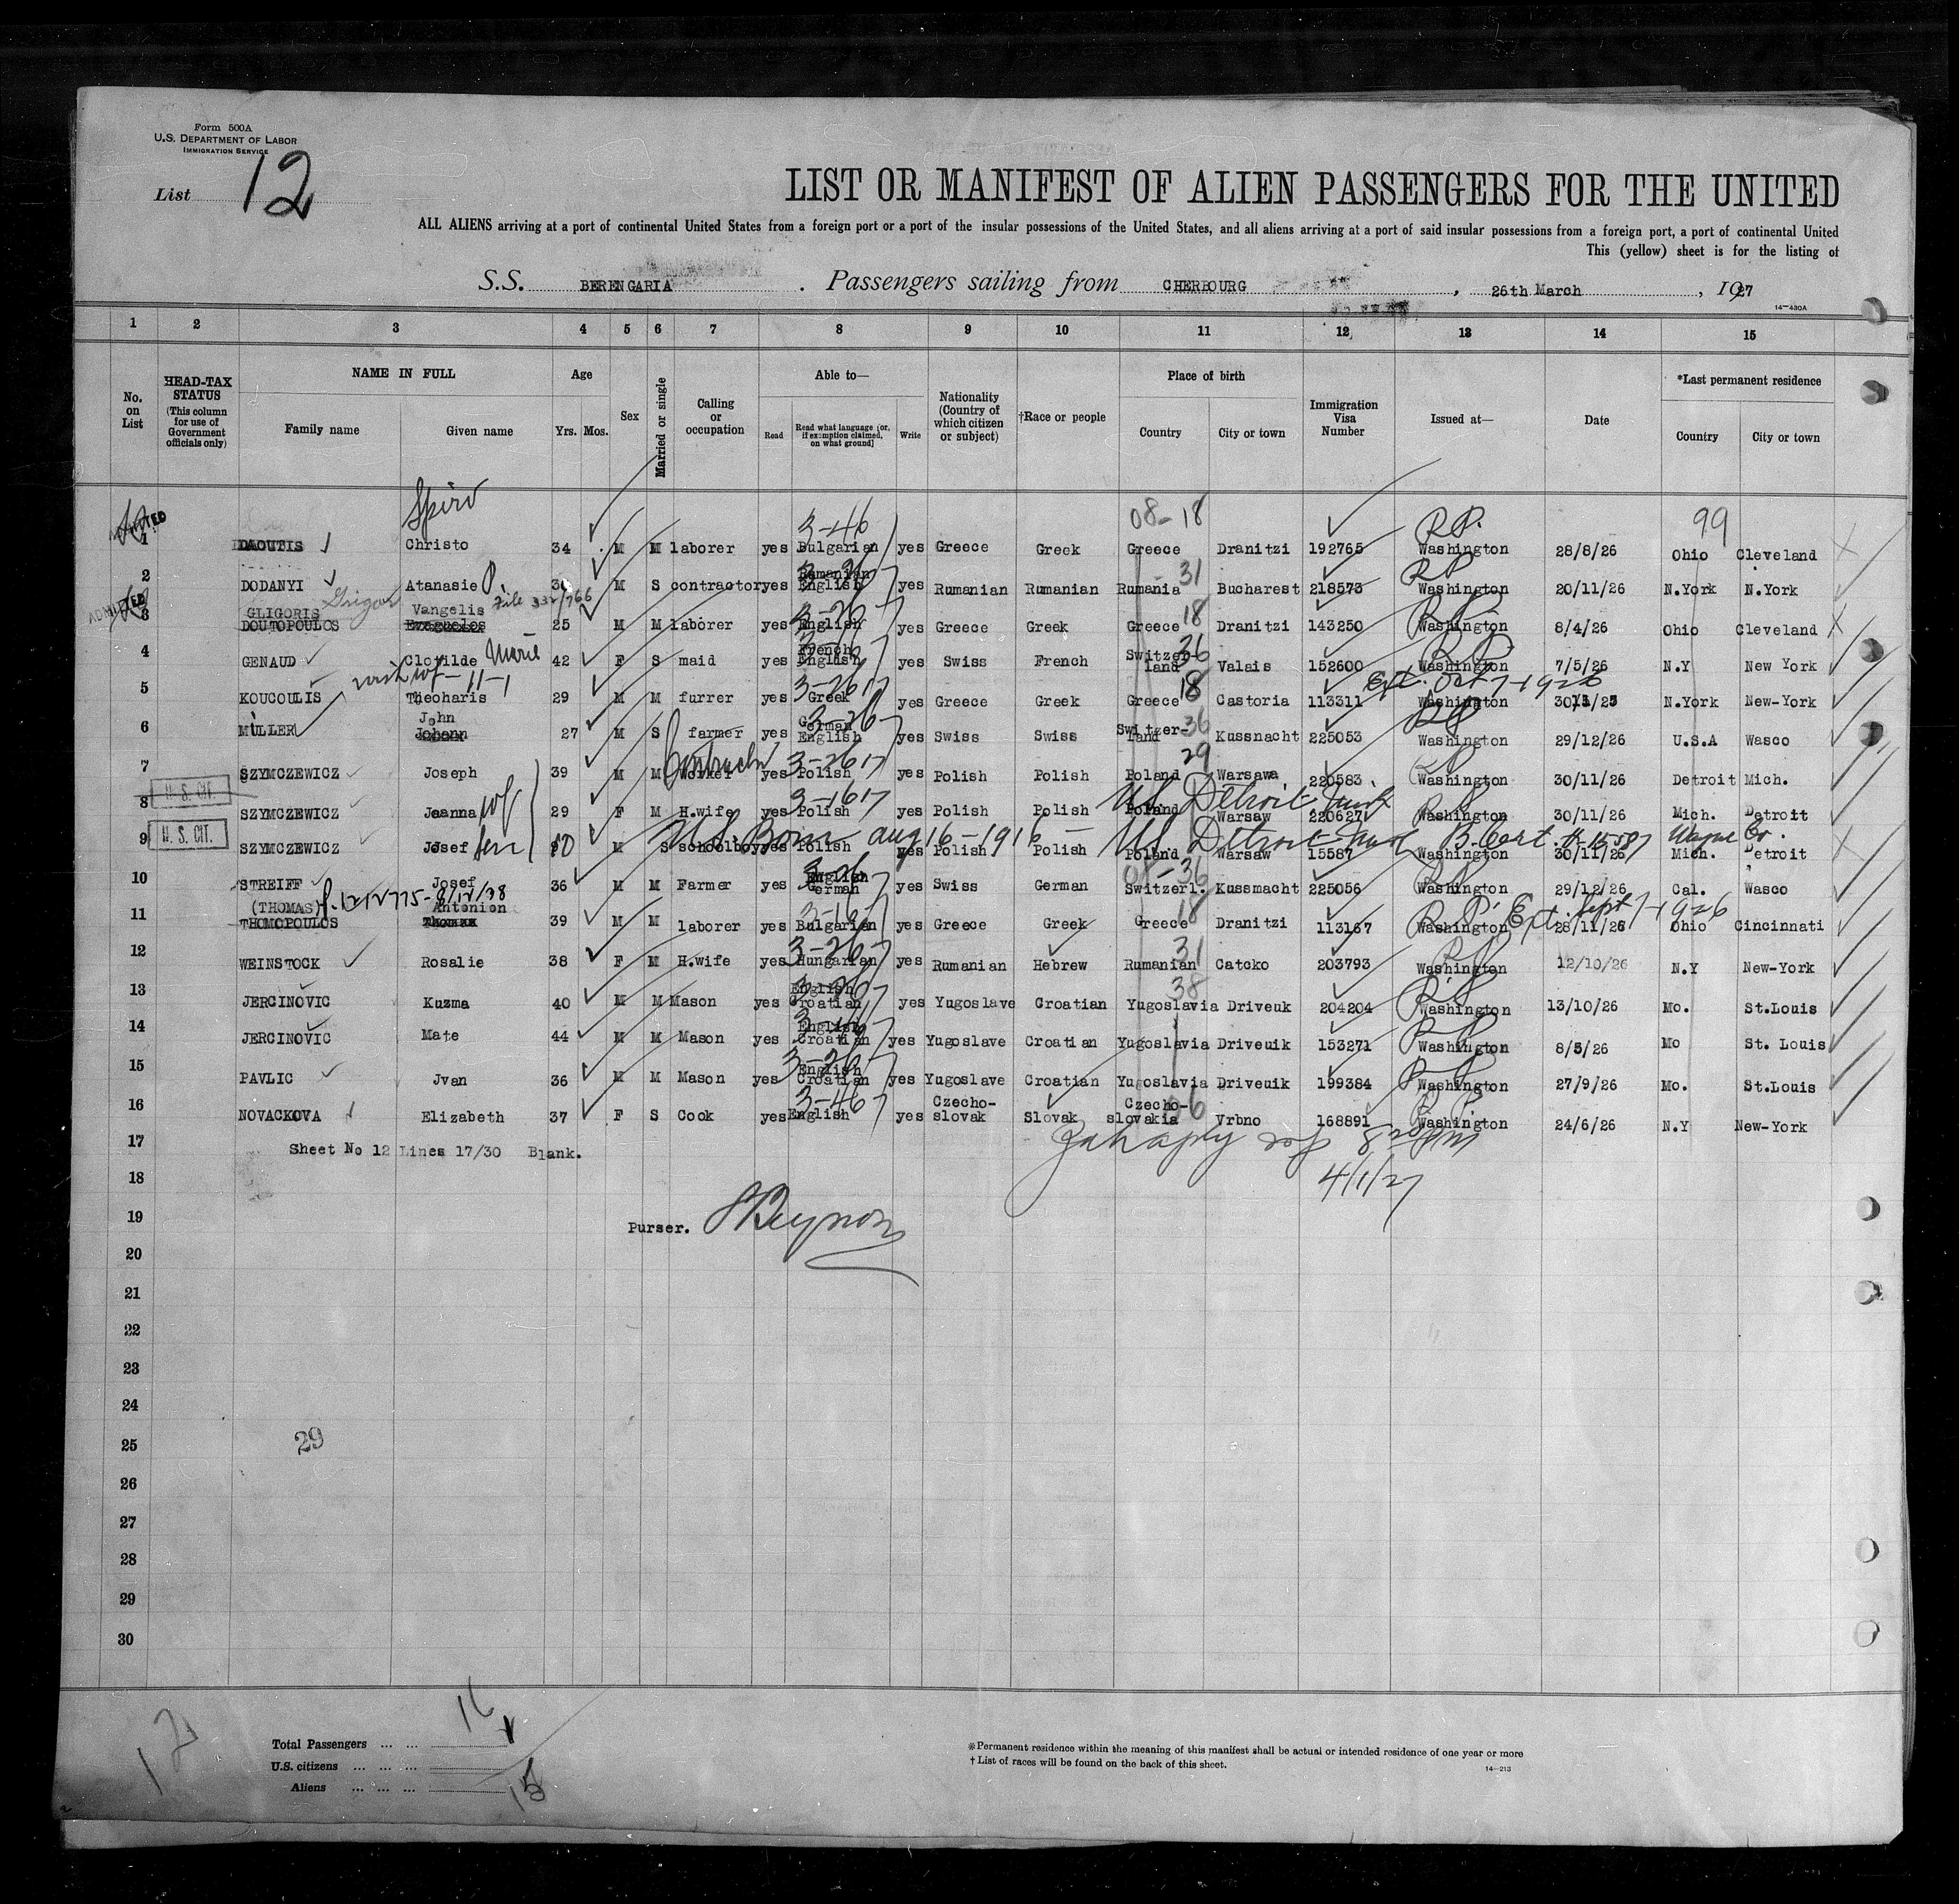 Form 500A
U.S. DEPARTMENT OF LABOR
IMMIGRATION SERVICE
List 12
LIST OR MANIFEST OF ALIEN PASSENGERS FOR THE UNITED
ALL ALIENS arriving at a port of continental United States from a foreign port or a port of the insular possessions of the United States, and all aliens arriving at a port of said insular possessions from a foreign port, a port of continental United
This (yellow) sheet is for the listing of
S.S. BERENGARIA . Passengers sailing from CHERBOURG , 26th March , 1927
14-430A
1 2 3 4 5 6 7 8 9 10 11 12 13 14 15
No. on List
HEAD-TAX STATUS (This column for use of Government officials only)
NAME IN FULL Family name Given name
Age Yrs. Mos.
Sex
Married or single
Calling or occupation
Able to— Read Read what language [or, if exemption claimed, on what ground] Write
Nationality (Country of which citizen or subject)
†Race or people
Place of birth Country City or town
Immigration Visa Number
Issued at—
Date
*Last permanent residence Country City or town
Spiro 3-46 08-18 R.P. 99
ADMITTED
1 DAOUTIS Christo 34 M M laborer yes Bulgarian yes Greece Greek Greece Dranitzi 192765 Washington 28/8/26 Ohio Cleveland
2 DODANYI Atanasie P. M S contractor yes Rumanian English yes Rumanian Rumanian Rumania 31 Bucharest 218573 RP Washington 20/11/26 N.York N.York
ADMITTED
3 GLIGORIS Grigor Vangelis File 332/766
DOUTOPOULOS 25 M M laborer yes English yes Greece Greek Greece 18 Dranitzi 143250 Washington 8/4/26 Ohio Cleveland
4 GENAUD Clotilde Marie 42 F S maid yes French English yes Swiss French Switzerland 36 Valais 152600 RP Washington 7/5/26 N.Y New York
5 KOUCOULIS Theoharis 29 M M furrer yes Greek 3-26 yes Greece Greek Greece 18 Castoria 113311 Ext. Oct 7-1926 Washington N.York New-York
6 MÜLLER John Johann 27 M S farmer yes German English yes Swiss Swiss Switzerland 36 Kussnacht 225053 Washington 29/12/26 U.S.A Wasco
7 SZYMCZEWICZ Joseph 39 M M Worker yes Polish 3-26 yes Polish Polish Poland 29 Warsawa 220583 Washington 30/11/26 Detroit Mich.
U. S. CIT.
8 SZYMCZEWICZ Jeanna wf 29 F M H.wife yes Polish 3-16 yes Polish Polish Poland US Detroit Mich Warsaw 220627 Washington 30/11/26 Mich. Detroit
U. S. CIT.
9 SZYMCZEWICZ Josef son 10 M S schoolboy yes Polish yes Polish Polish Poland Warsaw 15587 Washington 30/11/26 Mich. Detroit
U.S. Born aug 16-1916 — US Detroit Mich B. Cert. Wayne Co.
10 STREIFF Josef 36 M M Farmer yes English German yes Swiss German Switzerl. 36 Kussmacht 225056 Washington 29/12/26 Cal. Wasco
(THOMAS) Antonion
11 THOMOPOULOS Thomas 39 M M laborer yes Bulgarian yes Greece Greek Greece 18 Dranitzi 113167 R.P. Ext. Sept 7-1926 Washington 28/11/26 Ohio Cincinnati
12 WEINSTOCK Rosalie 38 F M H.wife yes Hungarian 3-26 yes Rumanian Hebrew Rumanian 31 Catcko 203793 Washington 12/10/26 N.Y New-York
13 JERCINOVIC Kuzma 40 M M Mason yes English Croatian yes Yugoslave Croatian Yugoslavia 38 Driveuk 204204 Washington 13/10/26 Mo. St.Louis
14 JERCINOVIC Mate 44 M M Mason yes English Croatian yes Yugoslave Croatian Yugoslavia Driveuik 153271 Washington 8/5/26 Mo St. Louis
15 PAVLIC Jvan 36 M M Mason yes English Croatian 3-26 yes Yugoslave Croatian Yugoslavia Driveuik 199384 Washington 27/9/26 Mo. St.Louis
16 NOVACKOVA Elizabeth 37 F S Cook yes English 3-46 yes Czecho-slovak Slovak Czecho-slovakia 06 Vrbno 168891 R.P. Washington 24/6/26 N.Y New-York
17 Sheet No 12 Lines 17/30 Blank.
18 4/1/27
19 Purser.
20
21
22
23
24
25 29
26
27
28
29
30
12
Total Passengers ... ... 16
U.S. citizens ... ... ... 1
Aliens ... ... ... 15
※Permanent residence within the meaning of this manifest shall be actual or intended residence of one year or more
† List of races will be found on the back of this sheet.
14-213